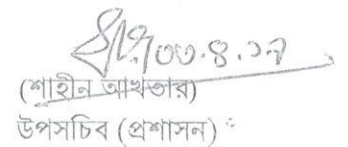 ৩০.৪.১৭
(শাহীন আখতার)
উপসচিব (প্রশাসন)